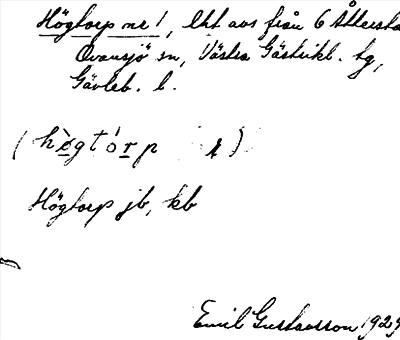 Högtorp nr 1, lht avs från 6 Åttersta
Ovansjö sn, Västra Gästrikl. tg,
Gävleb. l.
(högtórp r)
Högtorp jb, kb
Emil Gustavsson 1929